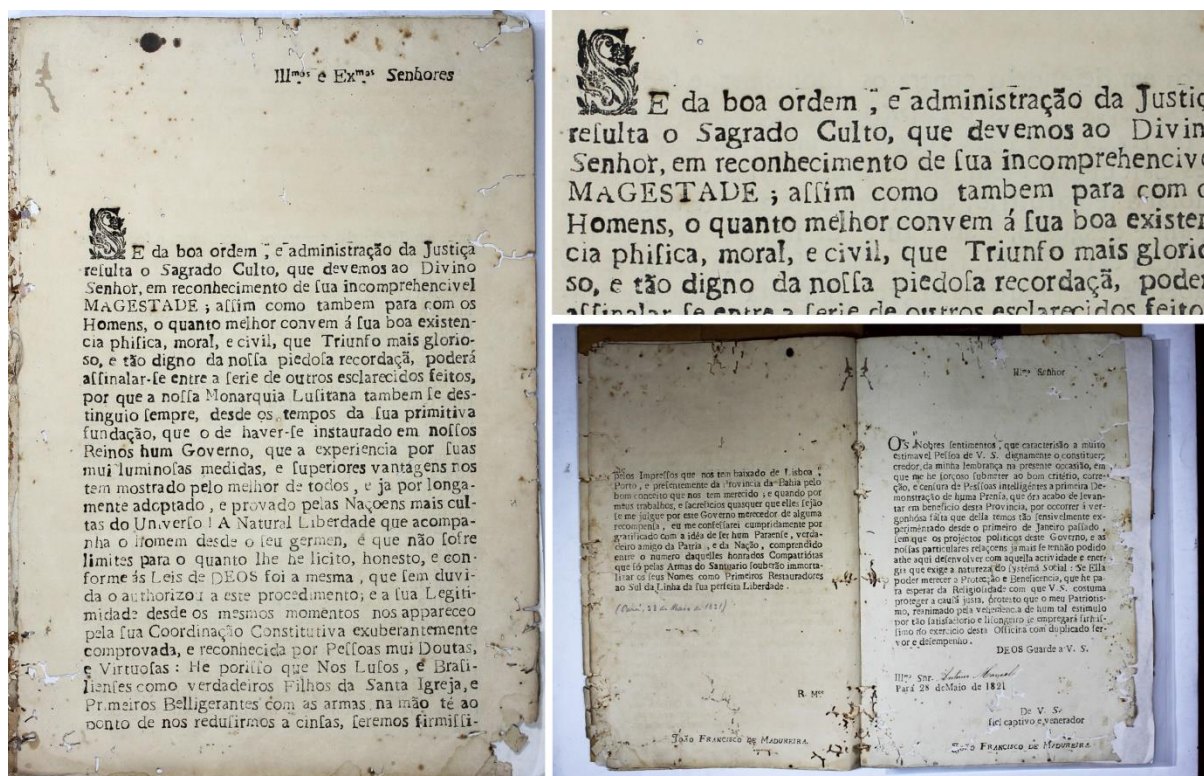 Illᵐᵒˢ e Exᵐᵃˢ Senhores
SE da boa ordem, e administração da Juſtiça
reſulta o Sagrado Culto, que devemos ao Divino
Senhor, em reconhecimento de ſua incomprehencivel
MAGESTADE ; aſſim como tambem para com os
Homens, o quanto melhor convem á ſua boa exiſten-
cia phiſica, moral, e civil, que Triunfo mais glorio-
so, e tão digno da noſſa piedoſa recordaçã, poderá
aſſinalar-ſe entre a ſerie de outros esclarecidos feitos,
por que a noſſa Monarquia Luſitana tambem ſe des-
tinguio ſempre, desde os tempos da ſua primitiva
fundação, que o de haver-ſe instaurado em noſſos
Reinos hum Governo, que a experiencia por ſuas
mui luminoſas medidas, e ſuperiores vantagens nos
tem mostrado pelo melhor de todos, e ja por longa-
mente adoptado, e provado pelas Naçoens mais cul-
tas do Univerſo ! A Natural Liberdade que acompa-
nha o Homem desde o ſeu germen, é que não ſofre
limites para o quanto lhe he licito, honesto, e con-
forme ás Leis de DEOS foi a mesma, que ſem duvi-
da o authorizou a este procedimento; e a ſua Legiti-
midade desde os mesmos momentos nos appareceo
pela ſua Coordinação Constitutiva exuberantemente
comprovada, e reconhecida por Peſſoas mui Doutas,
e Virtuoſas : He poriſſo que Nos Luſos, e Braſi-
lienſes como verdadeiros Filhos da Santa Igreja, e
Primeiros Belligerantes com as armas na mão té ao
ponto de nos reduſirmos a cinſas, ſeremos firmiſſi-
SE da boa ordem, e administração da Juſtiç
reſulta o Sagrado Culto, que devemos ao Divin
Senhor, em reconhecimento de ſua incomprehencive
MAGESTADE ; aſſim como tambem para com o
Homens, o quanto melhor convem á ſua boa exiſten
cia phiſica, moral, e civil, que Triunfo mais glorio
so, e tão digno da noſſa piedoſa recordaçã, poder
aſſinalar ſe entre a ſerie de outros esclarecidos feito
Pelos Impreſſos que nos tem baixado de Lisboa,
Porto, e preſentemente da Provincia da Bahia pelo
bom conceito que nos tem merecido ; e quando por
meus trabalhos, e ſacreficios quasquer que elles ſejão
ſe me julgue por este Governo merecedor de alguma
recompenſa, eu me confeſſarei cumpridamente por
gratificado com a idéa de ſer hum Paraenſe, verda-
deiro amigo da Patria, e da Nação, comprendido
entre o numero daquelles honrados Compatriotas
que ſó pelas Armas do Santuario ſouberão immorta-
lizar os ſeus Nomes como Primeiros Restauradores
ao Sul da Linha da ſua perfeita Liberdade.
(Pará, 28 de Maio de 1821)
R. Mᶜᵉ
JOÃO FRANCISCO DE MADUREIRA.
Illᵐᵒ Senhor
OS Nobres ſentimentos, que caracteriſão a muito
estimavel Peſſoa de V. S. dignamente o constituem
credor, da minha lembrança na preſente occaſião, em
que me he forçoso ſubmeter ao bom critério, corre-
ção, e cenſura de Peſſoas intelligentes a primeira De-
monstração de huma Prenſa, que óra acabo de levan-
tar em beneficio desta Provincia, por occorrer á ver-
gonhóſa falta que della temos tão ſenſivelmente ex-
perimentado desde o primeiro de Janeiro paſſado,
ſem que os projectos politicos deste Governo, e as
noſſas particulares relaçoens jamais ſe tenhão podido
athe aqui deſenvolver com aquella actividade e ener-
gia que exige a natureza do Systemá Social : Se Ella
poder merecer a Protecção e Beneficencia, que he pa-
ra eſperar da Religioſidade com que V. S. costuma
proteger a cauſa justa, protesto que o meu Patriotis-
mo, reanimado pela vehemencia de hum tal estimulo
por tão ſatisfactorio e liſongeiro ſe empregará firmiſ-
ſimo no exercicio desta Officina com duplicado fer-
vor e deſempenho.
DEOS Guarde a V. S.
Illᵐᵒ Snr.
Pará 28 de Maio de 1821
De V. S.
fiel captivo e venerador
JOÃO FRANCISCO DE MADUREIRA.